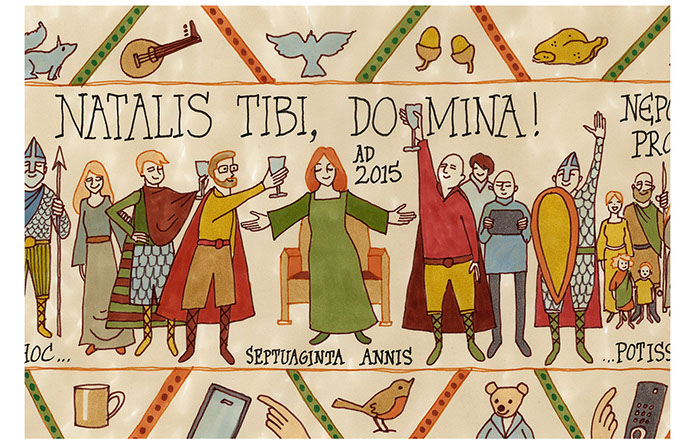 NATALIS TIBI, DOMINA!
NEPO
PRO
AD
2015
HOC...
SEPTUAGINTA ANNIS
...POTISS